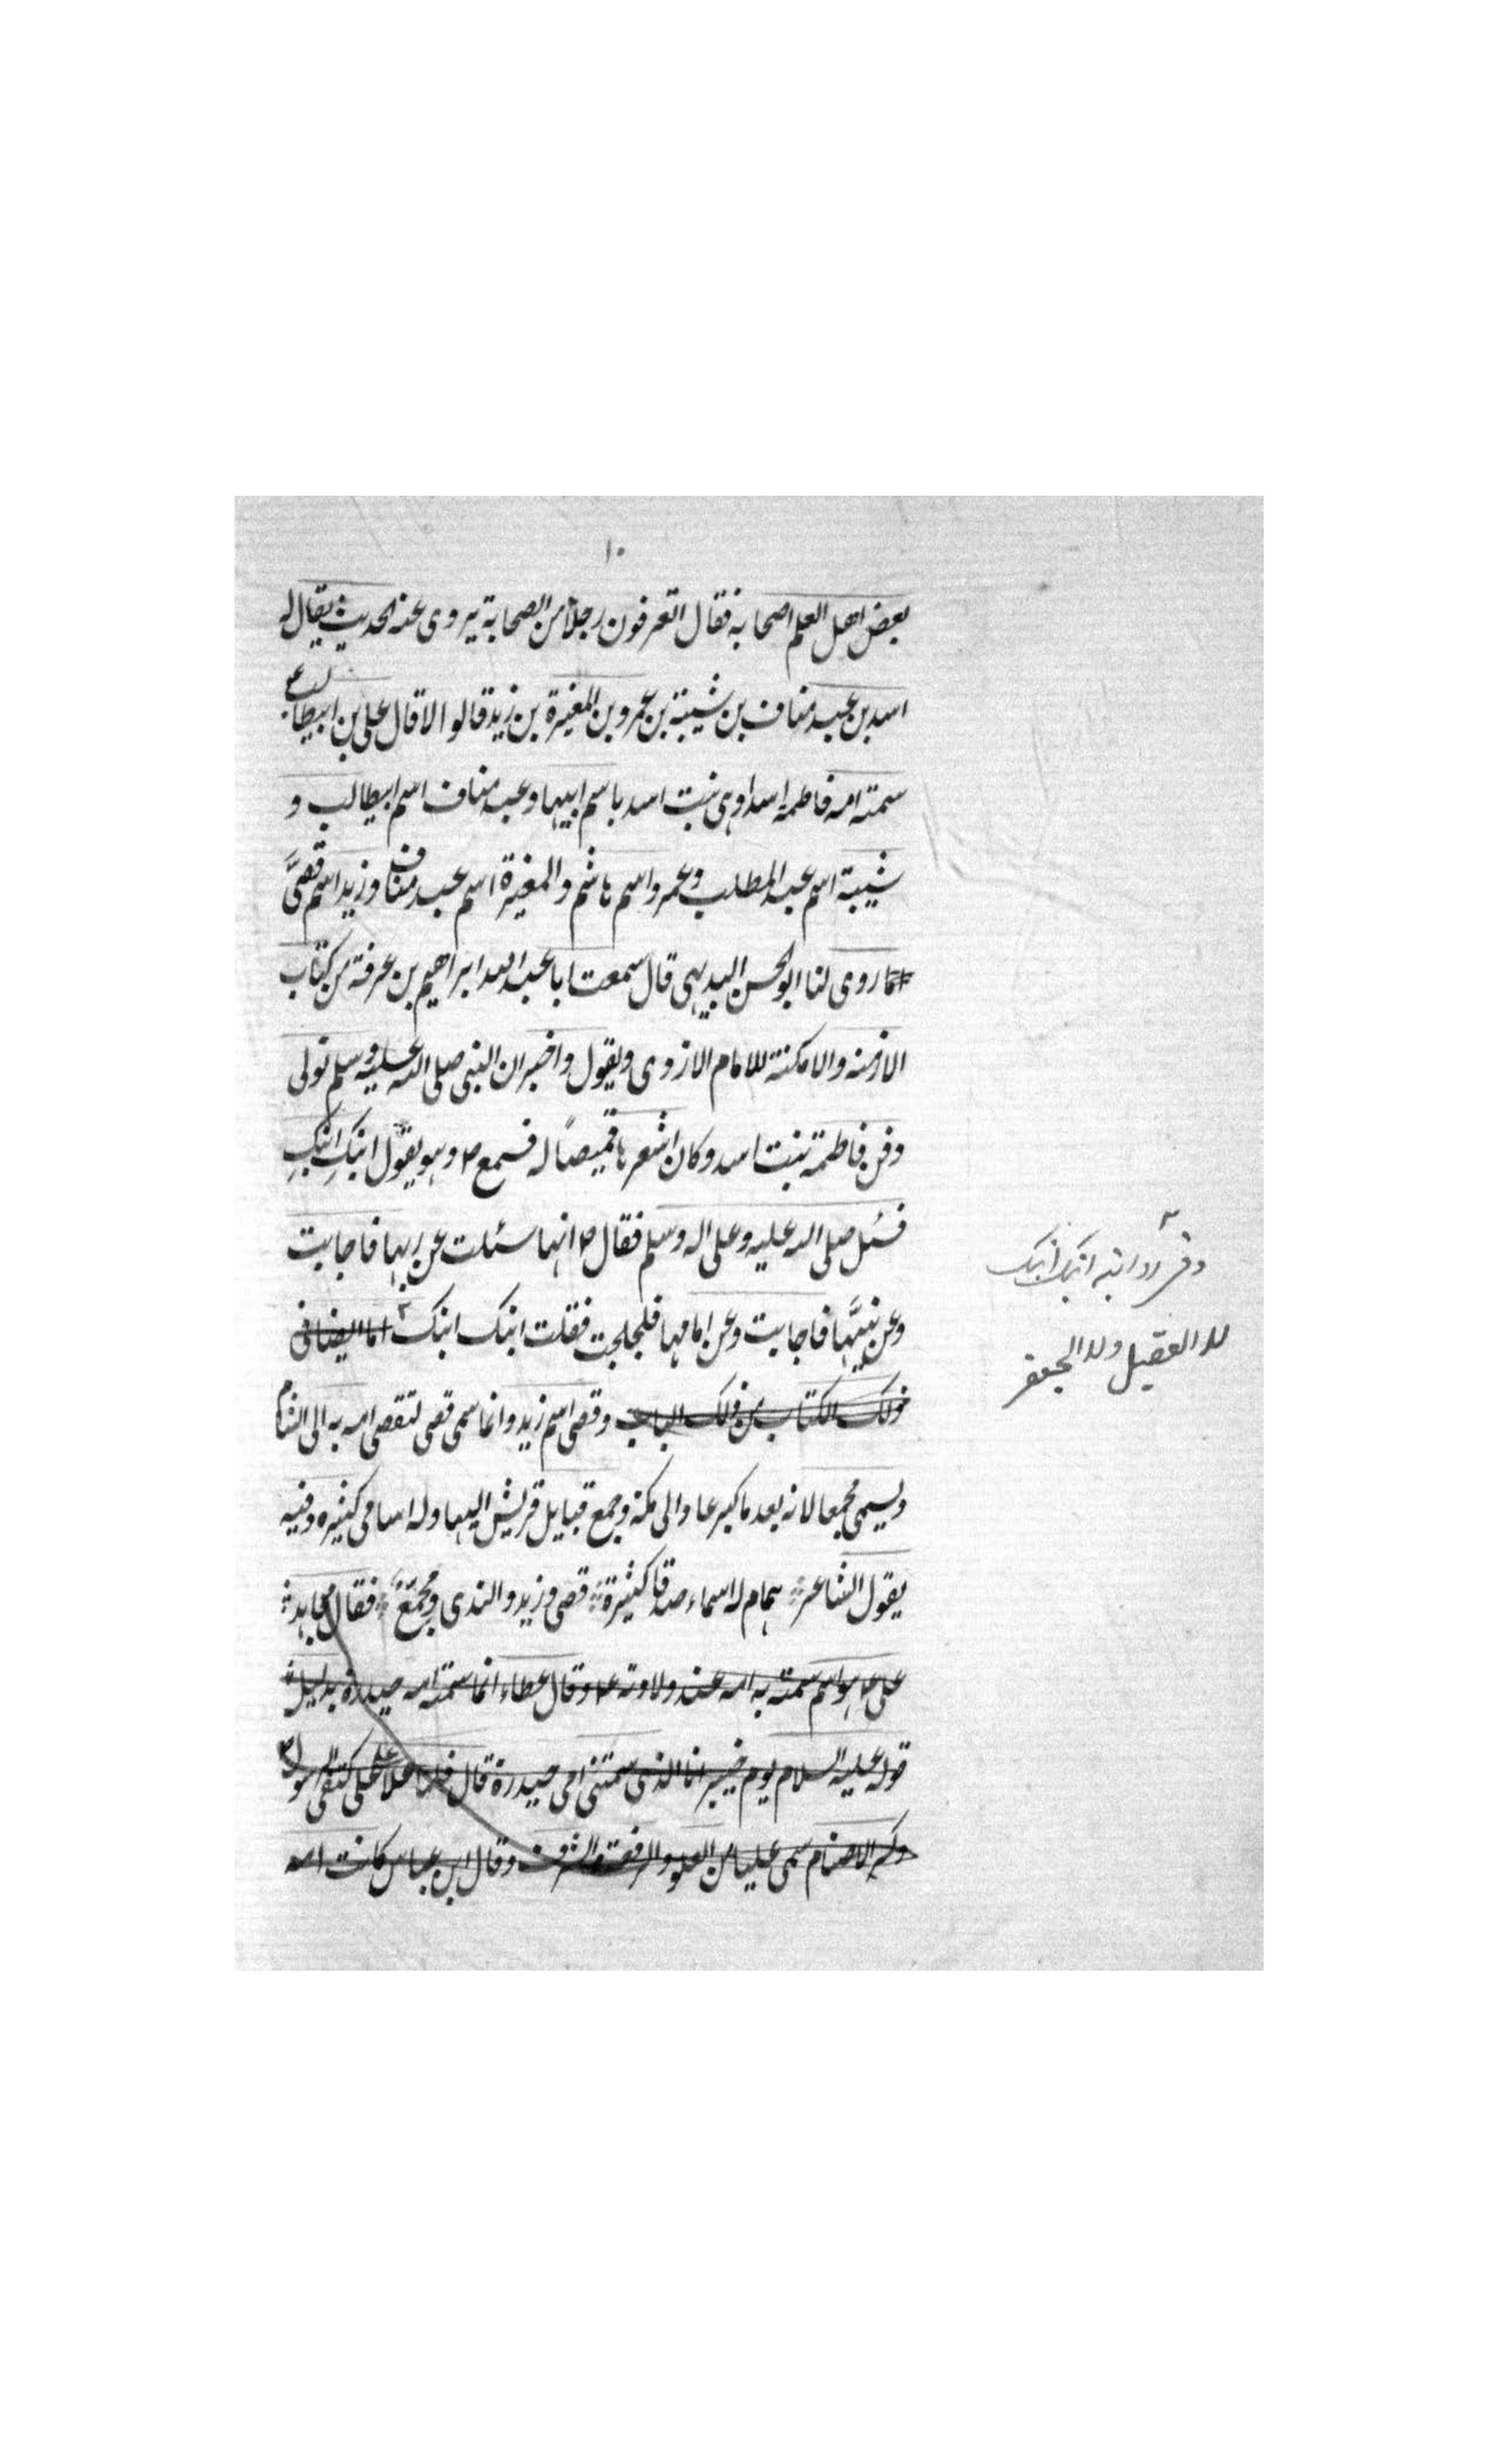 ١٠
بعض اهل العلم اصحابه فقال اتعرفون رجلاً من الصحابة يروى عنه الحديث يقال له
اسد بن عبد مناف بن شيبة بن عمرو بن المغيرة بن زيد قالوا لا قال على بن ابيطالب ع
سمته امه فاطمة اسدا وهى بنت اسد باسم ابيها وعبد مناف اسم ابيطالب و
شيبة اسم عبد المطلب وعمرو اسم هاشم والمغيرة اسم عبد مناف وزيد اسم قصىَّ
روى لنا ابو الحسن البديهى قال سمعت ابا عبد الله ابراهيم بن عرفة من كتاب
الازمنه والامكنة للامام الازدى ويقول واخبر ان النبى صلى الله عليه وسلم تولى
دفن فاطمة بنت اسد وكان اشعرها قميصاً له فسمع ص وهو يقول ابنكِ ابنكِ
فسئل صلى الله عليه وعلى اله وسلم فقال ص انها سئلت عن ربها فاجابت
وعن نبيَّها فاجابت وعن امامها فلجلجت فقلت ابنك ابنك اما ايضا فى
ذلك الكتاب من ذلك الباب وقصى اسم زيد وانما سمى قصى لتقصى امه به الى الشام
ويسمى مجمعا لانه بعد ما كبر عاد الى مكة وجمع قبايل قريش اليها وله اسامى كثيره وفيه
يقول الشاعر همام له اسماء صدقا كثيرة قصى وزيد والندى ومجمّعُ فقال مجاهد
على ع هو اسم سمته به امه عند ولادته ع وقال عطاء انما سمته امه حيدرة بدليل
قوله عليه السلام يوم خيبر انا الذى سمتنى امى حيدرة قال فلما علا على كتفى الرسول ص
وكسر الاصنام سمى عليا من العلو والرفعة والشرف وقال ابن عباس كانت امه
ابنك ابنك
لا العقيل ولا الجعفر